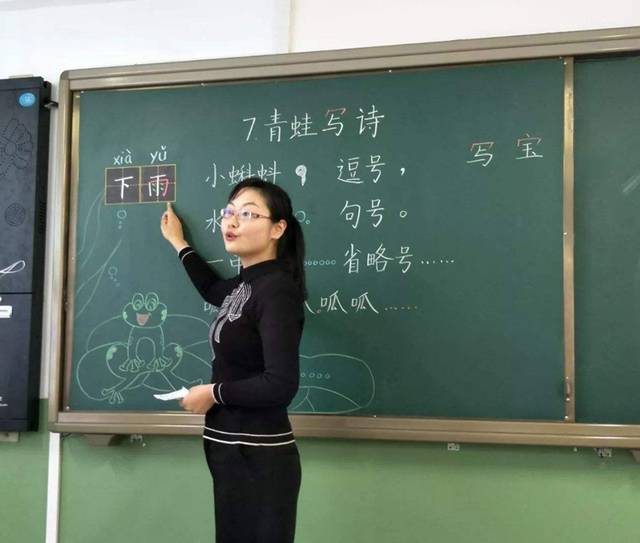 7.青蛙写诗
xià yǔ
下雨
小蝌蚪 , 逗号，
写 宝
水 。 句号。
一串 …… 省略号……
呱 呱呱……